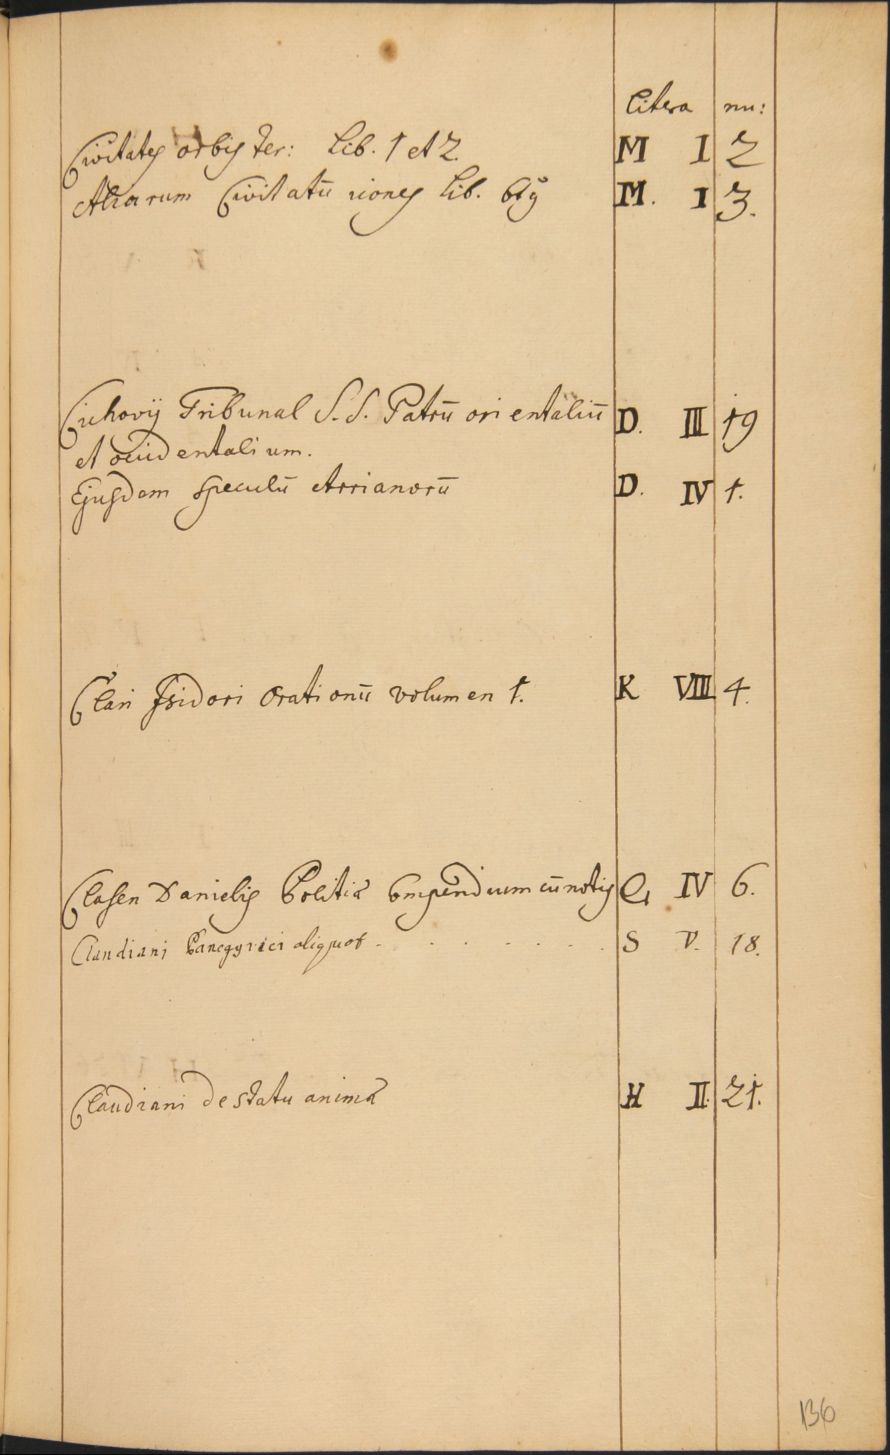 Litera nu:
Civitates orbis ter: Lib. 1 et 2. M I 2
Aliarum Civitatū Lib. M. I 3.
Cichovij Tribunal S.S. Patrū orientaliū D. III 19
et occidentalium.
Ejusdem speculū Arrianorū D. IV 1.
Clari Isidori Orationū volumen 1. K VIII 4.
Clasen Danielis Politiæ Compendium cū notis IV 6.
Claudiani Panegyrici aliquot - . . . . . . . S V. 18.
Claudiani de statu animæ H II. 21.
136